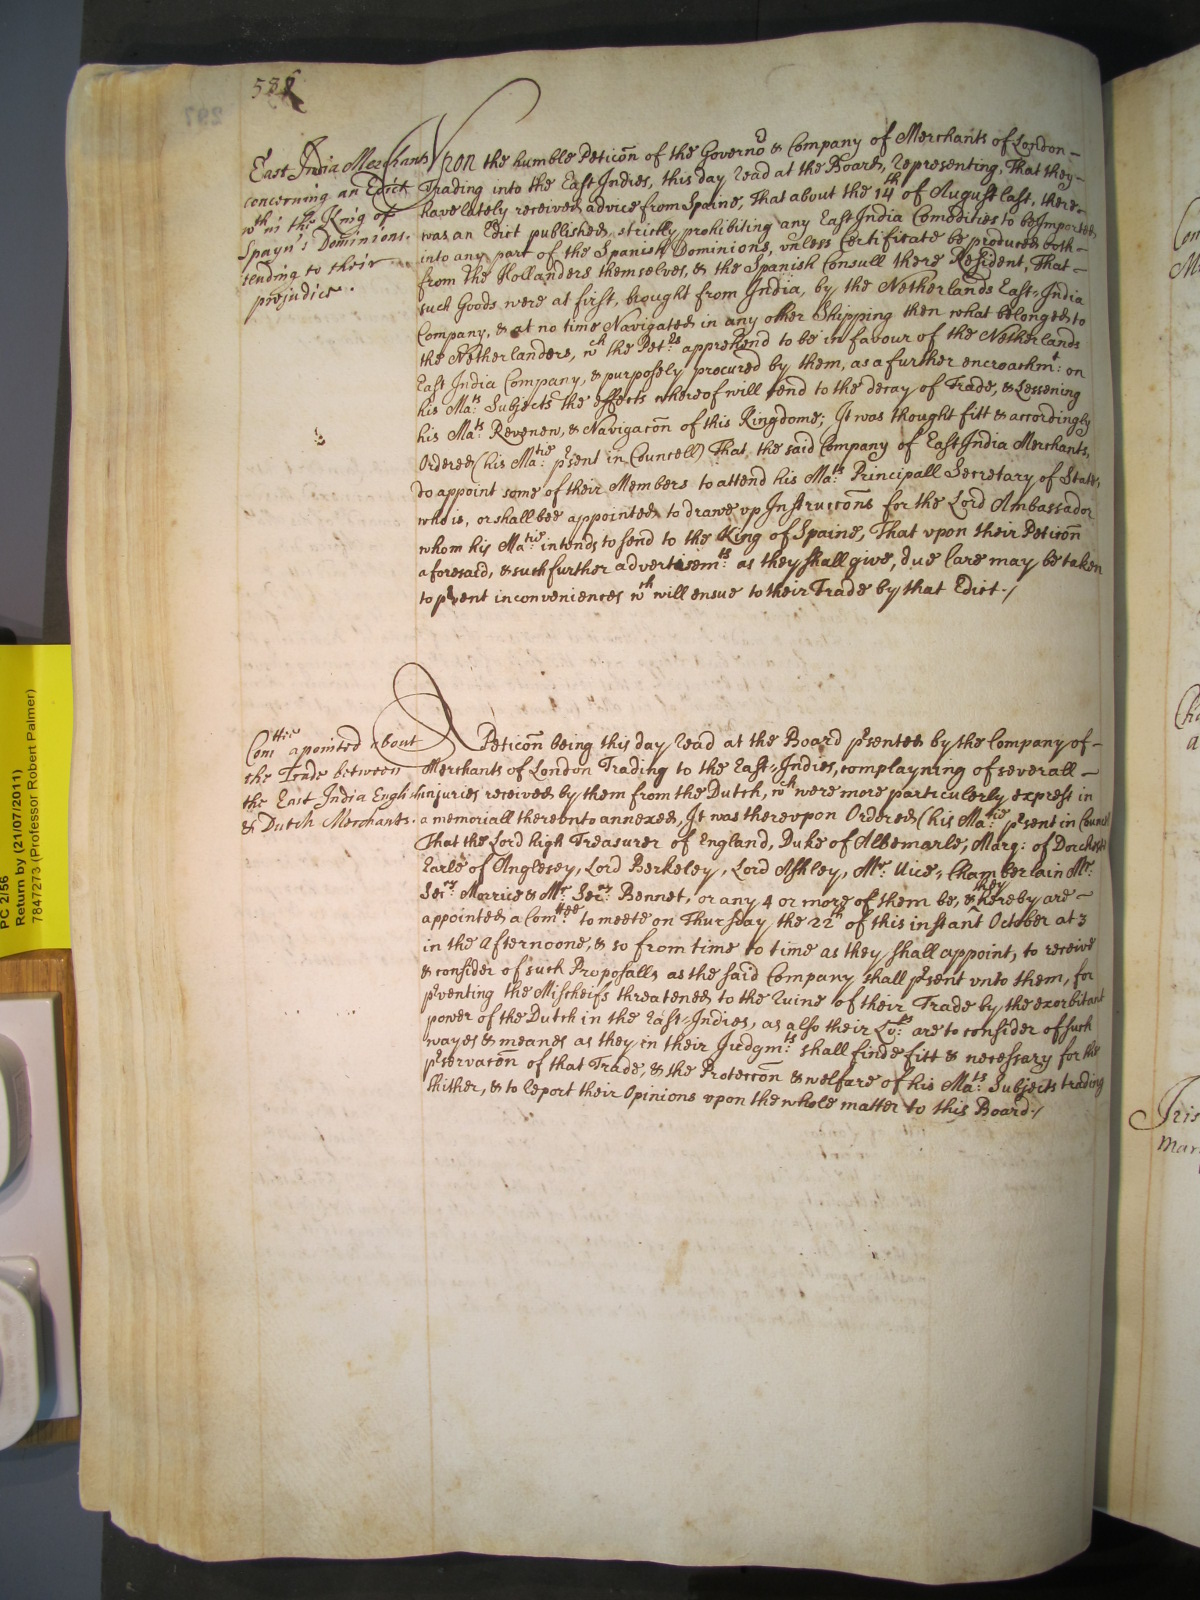 586
East India Merchants
concerning an Edict
wth in the King of
Spayn's Dominions.
tending to their
prejudice.
Vpon the humble Peticõn of the Governo & Company of Merchants of London –
Trading into the East Indies, this day read at the Board, Representing, That they –
have lately received advice from Spaine, That about the 14th of August last, there –
was an Edict published, strictly prohibiting any East India Comodities to be Imported
into any part of the Spanish Dominions, vnless Certificate be produced both –
from the Hollanders themselves, & the Spanish Consull there Resident, That –
such Goods were at first, brought from India, by the Netherlands East-India
Company, & at no time Navigated in any other Shipping then what belonged to
the Netherlanders, wch the Petrs apprehend to be in favour of the Netherlands
East India Company, & purposely procured by them, as a further encroachmt: on
his Mats: Subjects the effects whereof will tend to the decay of Trade, & Lessening
his Mats: Revenew, & Navigacõn of this Kingdome; It was thought fitt & accordingly
Ordered (his Matie: psent in Councell) That the said Company of East India Merchants,
do appoint some of their Members to attend his Mats: Principall Secretary of State,
who is, or shall bee appointed to drawe vp Instruccõns for the Lord Ambassador
whom his Matie: intends to send to the King of Spaine, That vpon their Peticõn
aforesaid, & such further advertisemts: as they shall give, due Care may be taken
to pvent inconveniences wch will ensue to their Trade by that Edict./
Comttee apointed about
the Trade between
the East India English
& Dutch Merchants.
A Peticõn being this day read at the Board psented by the Company of –
Merchants of London Trading to the East-Indies, complayning of severall –
injuries received by them from the Dutch, wch were more particulerly exprest in
a memoriall therevnto annexed, It was therevpon Ordered (his Matie: psent in Councell
That the Lord high Treasurer of England, Duke of Albemarle, Marq: of Dorchester
Earle of Anglesey, Lord Berkeley, Lord Ashley, Mr. Vice-Chamberlain Mr.
Secry. Morrice & Mr. Secry. Bennet, or any 4 or more of them be, & they hereby are –
appointed a Comttee to meete on Thursday the 22th of this instant October at 3
in the Afternoone, & so from time to time as they shall appoint, to receive
& consider of such Proposalls as the said Company shall psent vnto them, for
pventing the Mischeifs threatened to the Ruine of their Trade by the exorbitant
power of the Dutch in the East-Indies, as also their Lops: are to consider of such
wayes & meanes as they in their Judgmts: shall finde fitt & necessary for the
pservacõn of that Trade, & the Proteccõn & welfare of his Mats: Subjects trading
thither, & to report their Opinions vpon the whole matter to this Board./
PC 2/56
Return by (21/07/2011)
7847273 (Professor Robert Palmer)